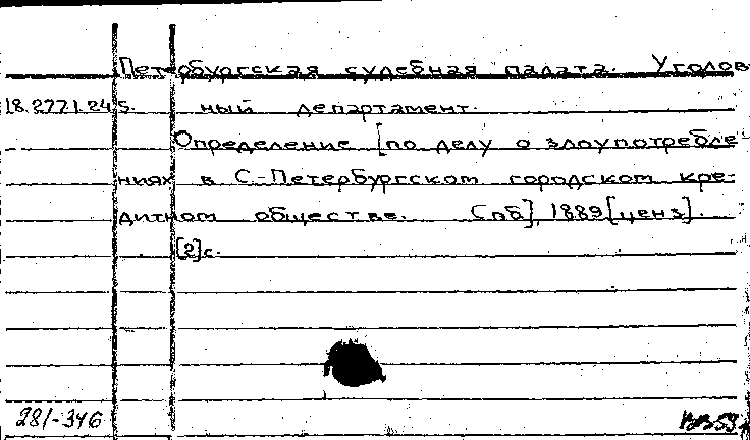 Петербургская судебная палата. Уголов-
18.277.1.245. ный департамент.
Определение [по делу о злоупотребле-
ниях в С.-Петербургском городском кре-
дитном обществе. Спб], 1889 [ценз].
[2] с.
281-346